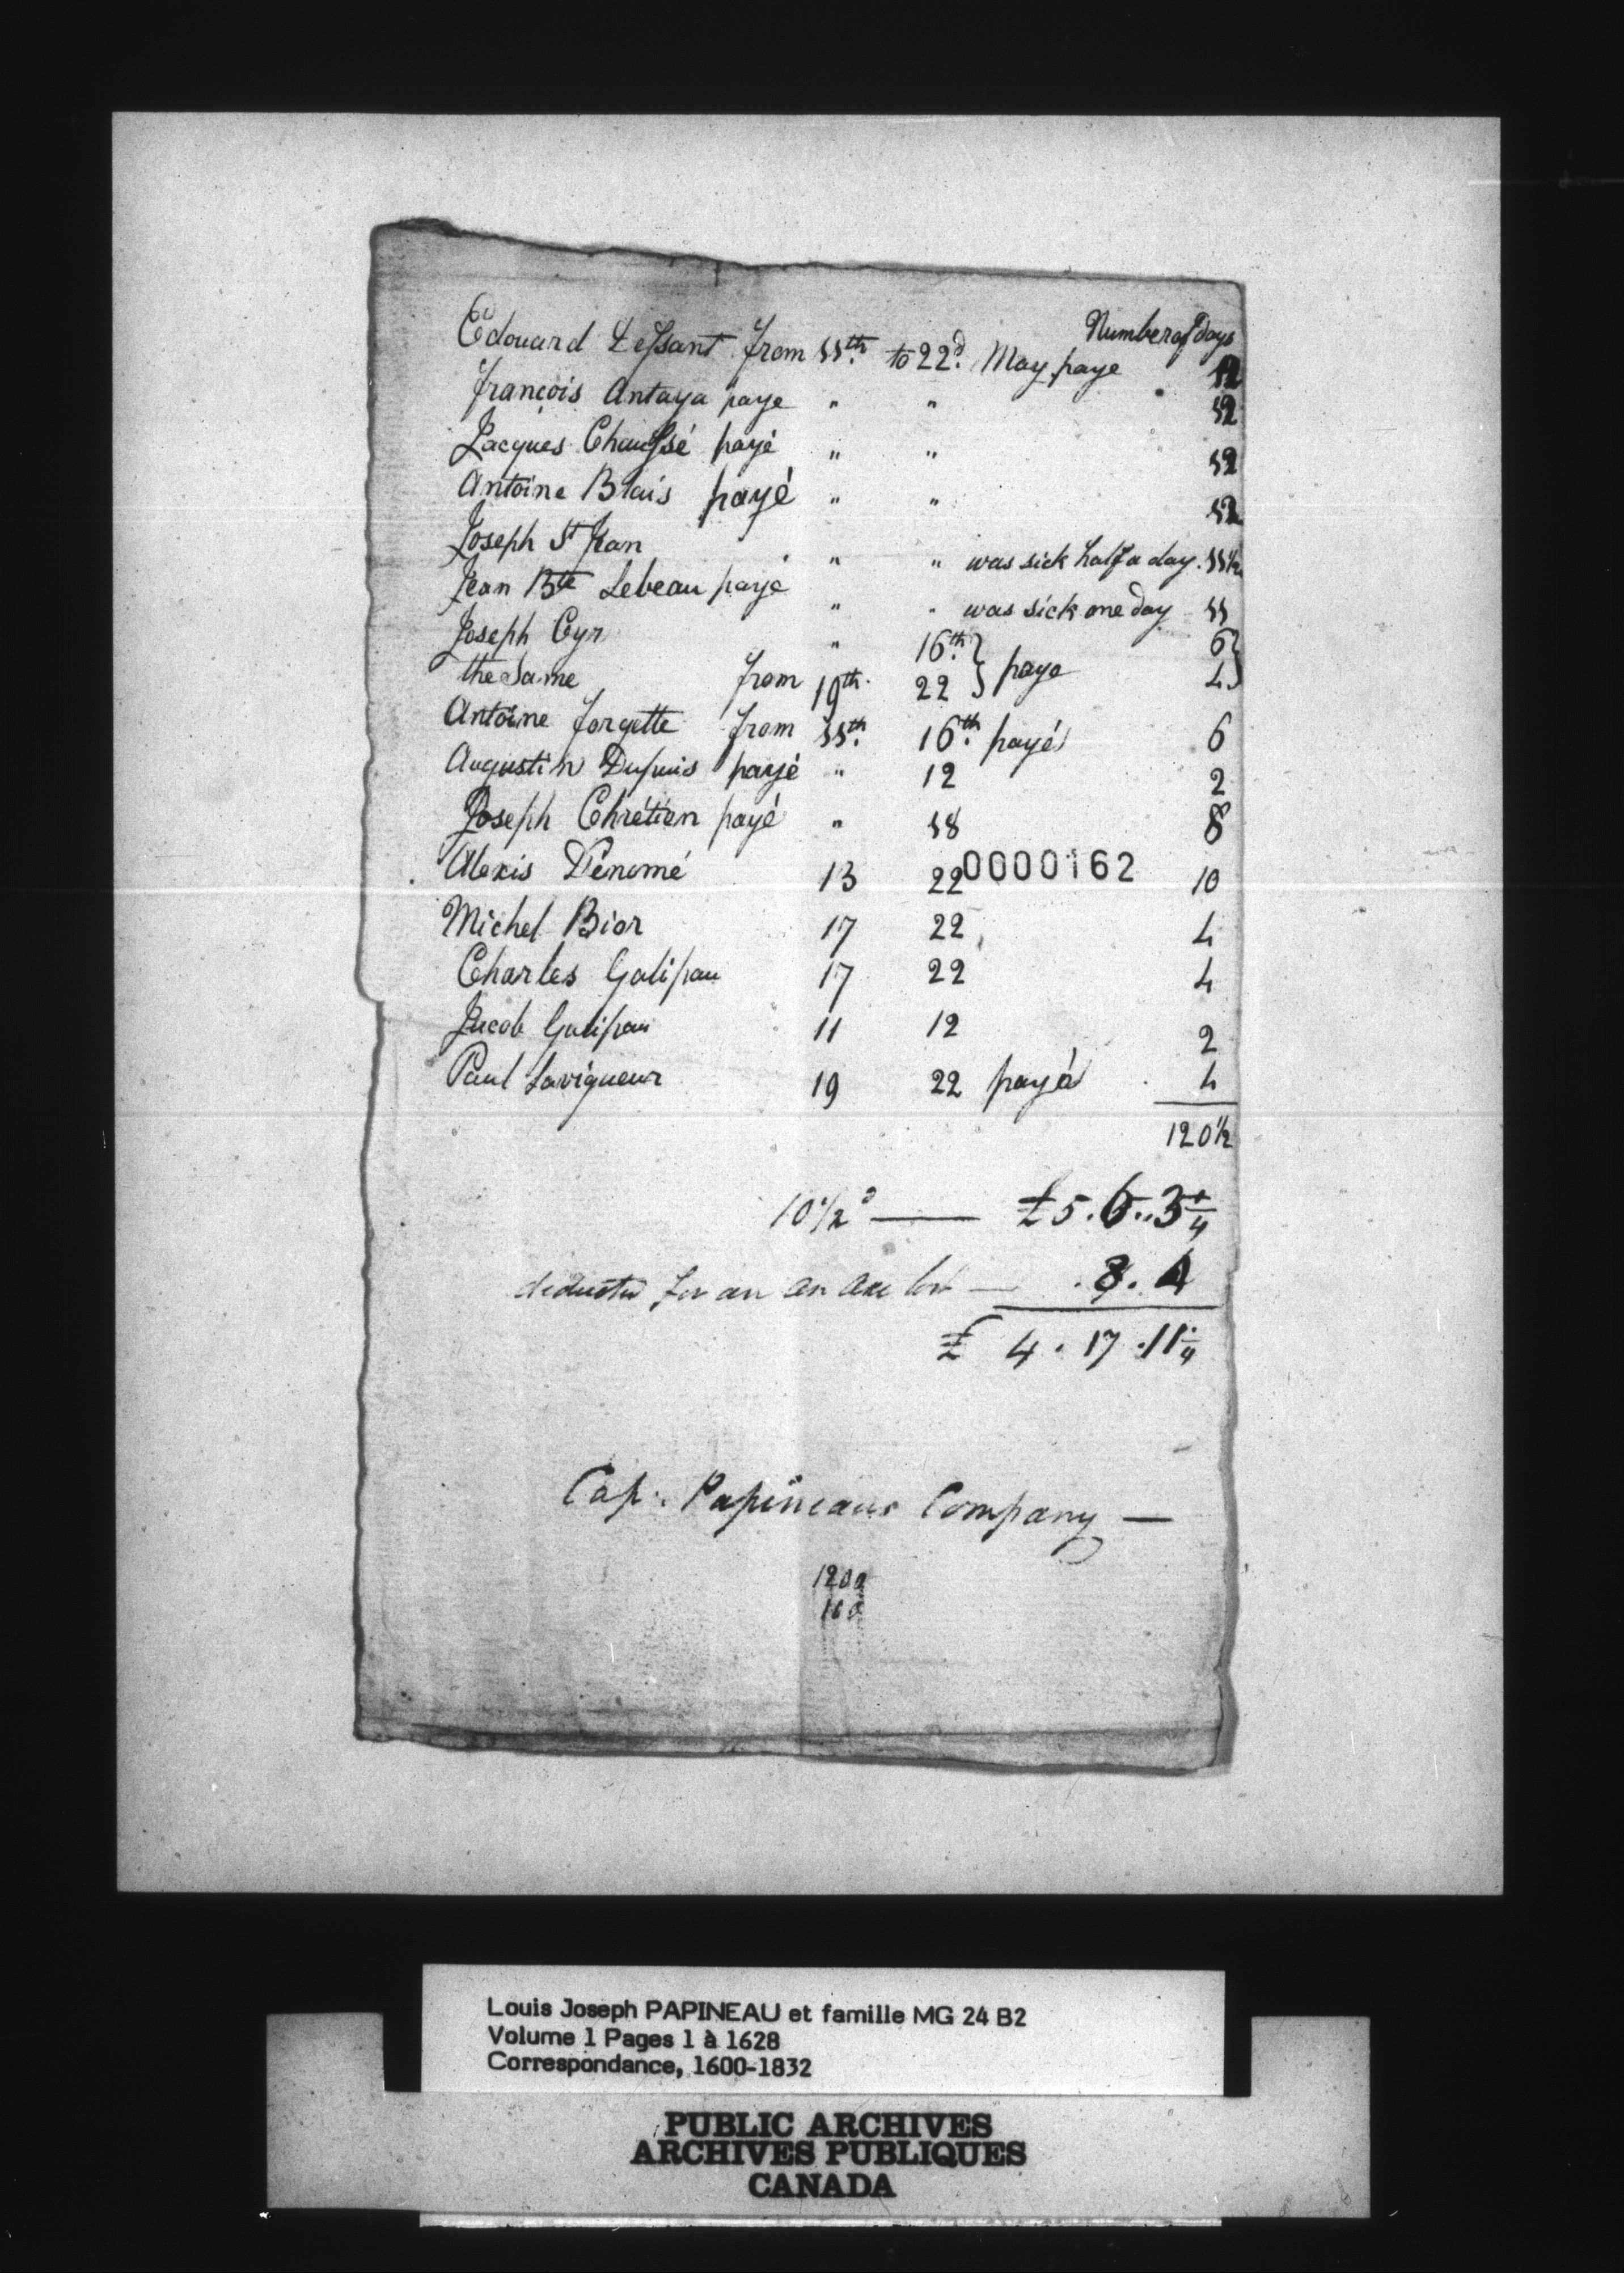 Number of days
Edouard Lessant from 11th. to 22d. May paye 12
françois Antaya paye " " 12
Jacques Chaussé payé " " 12
Antoine Blais payé " " 12
Joseph St Jean " " was sick half a day. 11½
Jean Bte Lebeau payé " " was sick one day 11
Joseph Cyr " 16th. } 6 }
the Same from 19th. 22 } paye 4 }
Antoine forgette from 11th. 16th. payé 6
Augustin Dupuis payé " 12 2
Joseph Chrétien payé " 18 8
Alexis Dénomé 13 22 10
0000162
Michel Bior 17 22 4
Charles Galipau 17 22 4
Jacob Galipau 11 12 2
Paul Lavigueur 19 22 payé 4
120½
10½d —— £5.6..3¼
deducted for an an axe lost — .8.4
£ 4.17.11¼
Cap. Papineaus Company —
Louis Joseph PAPINEAU et famille MG 24 B2
Volume 1 Pages 1 à 1628
Correspondance, 1600-1832
PUBLIC ARCHIVES
ARCHIVES PUBLIQUES
CANADA